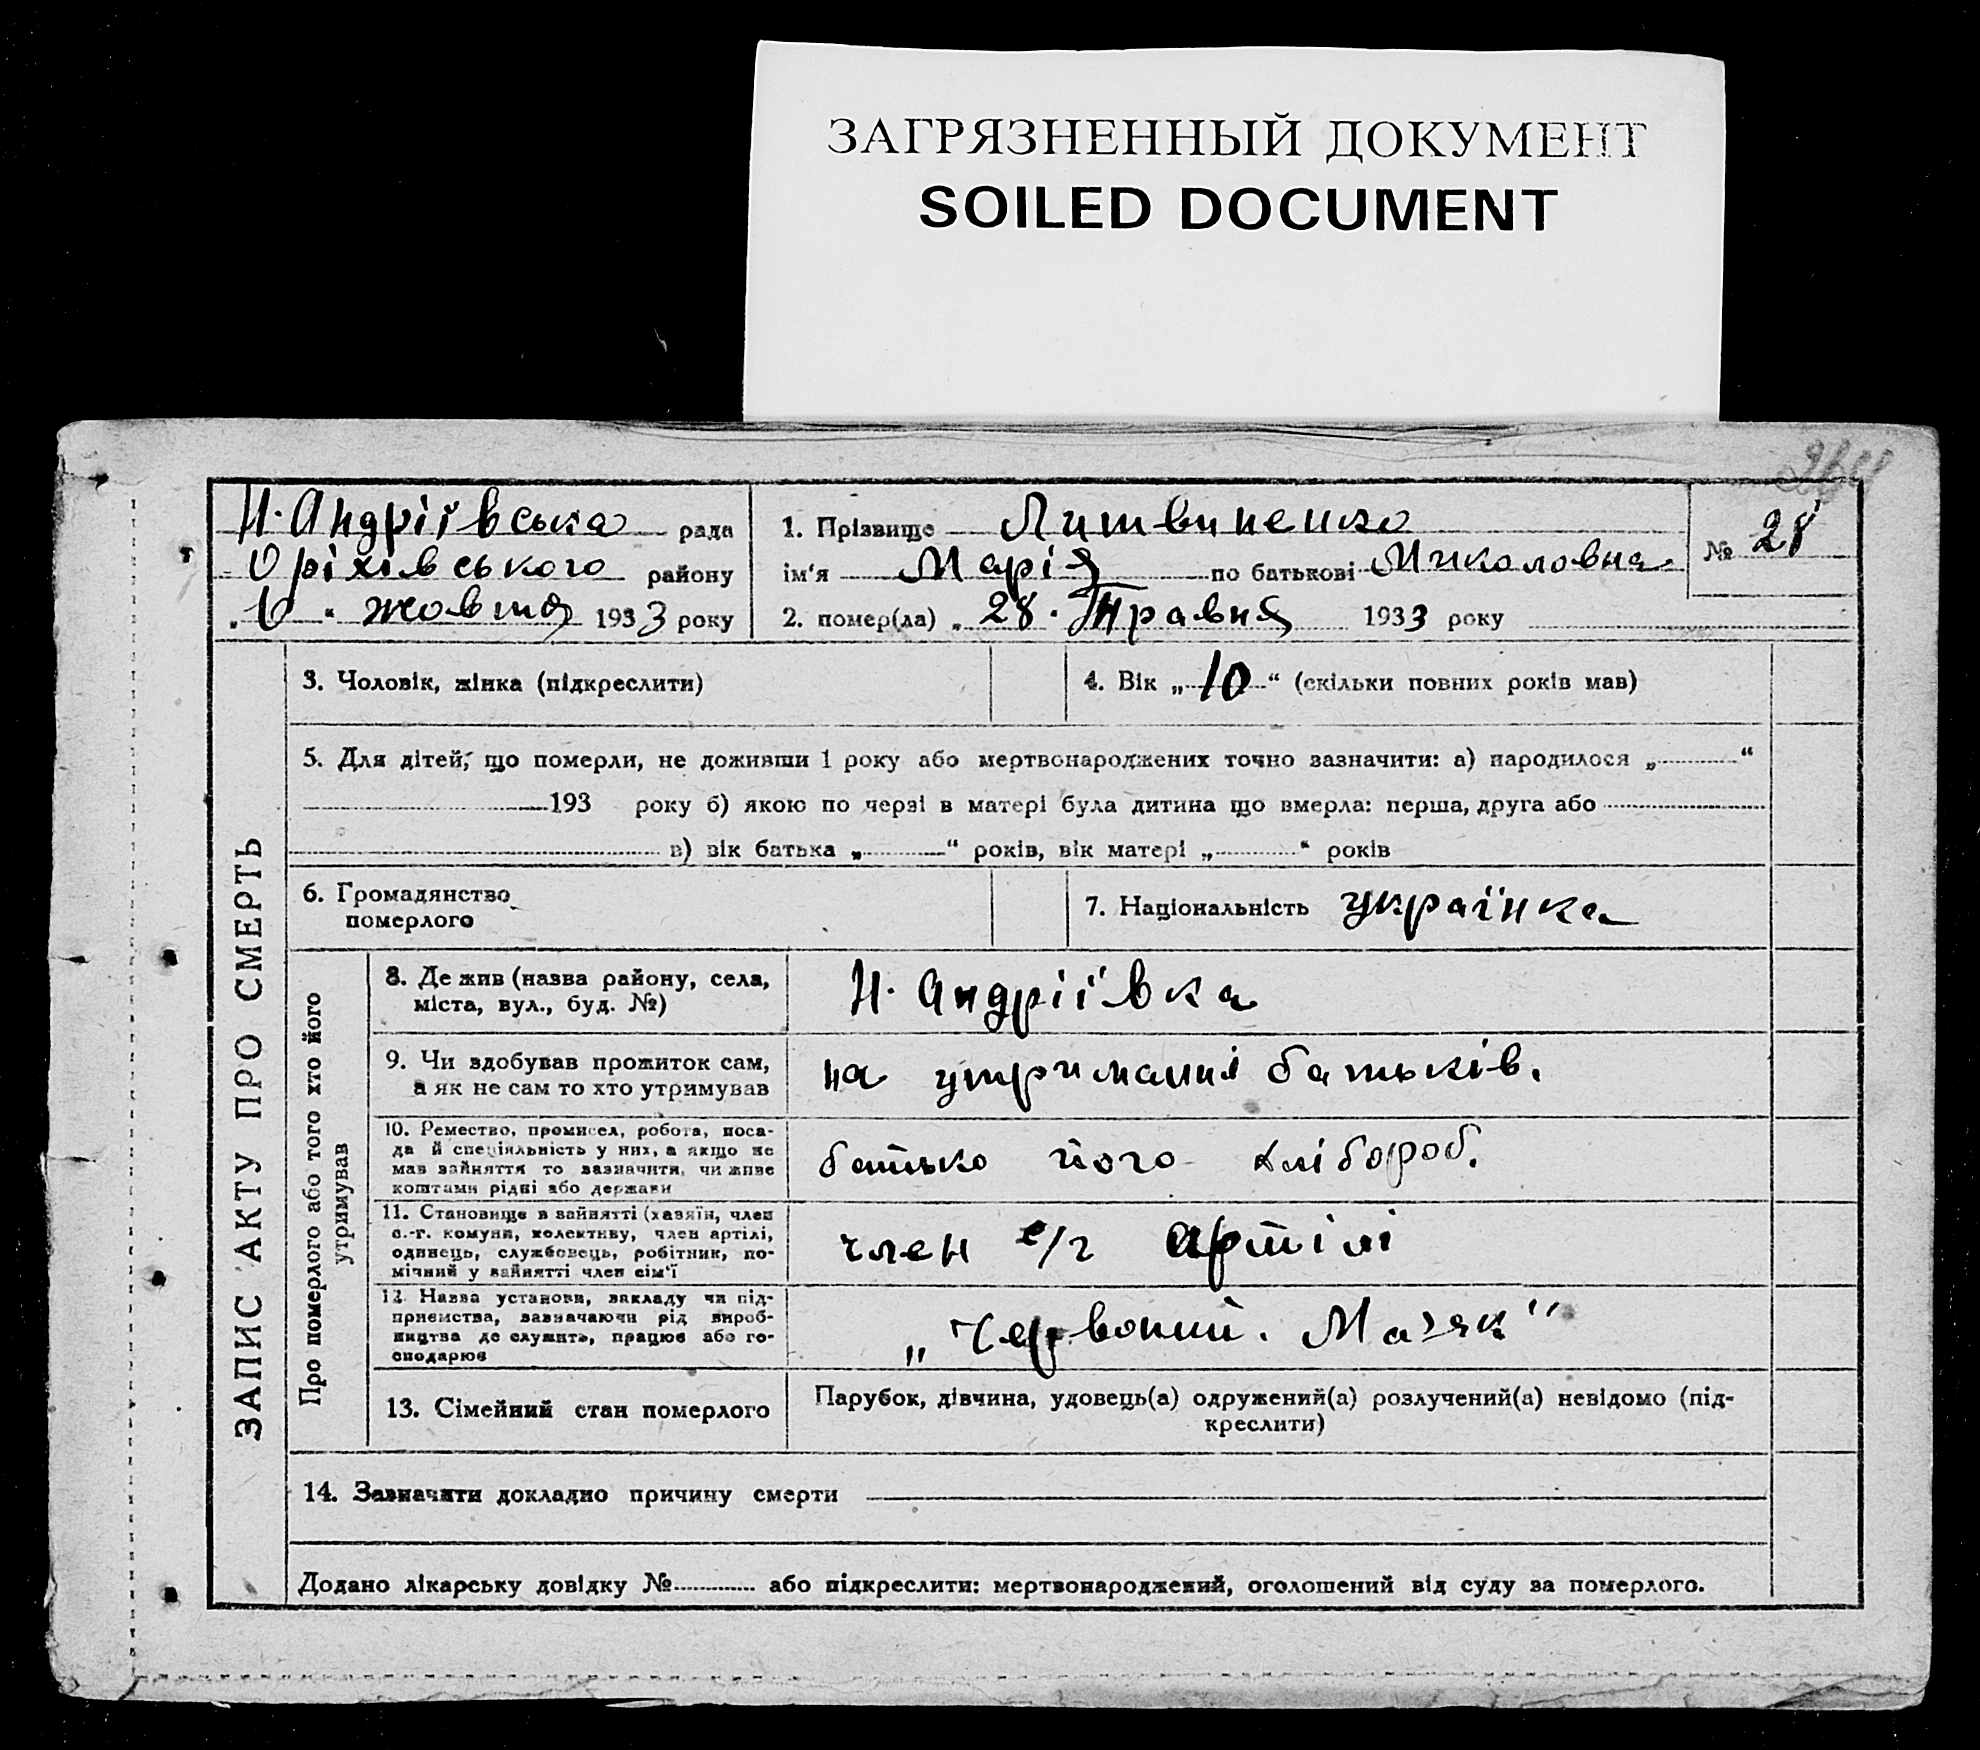 ЗАГРЯЗНЕННЫЙ ДОКУМЕНТ
SOILED DOCUMENT
Н. Андріївська рада
Оріхівського району
" 10 " жовтня 1933 року
1. Прізвище Литвиненко
ім'я Марія по батькові Миколовна
2. помер(ла) „ 28. Травня 1933 року
№ 28
ЗАПИС АКТУ ПРО СМЕРТЬ
3. Чоловік, жінка (підкреслити)
4. Вік „ 10 “ (скільки повних років мав)
5. Для дітей, що померли, не доживши 1 року або мертвонароджених точно зазначити: а) народилося „ “
193 року б) якою по черзі в матері була дитина що вмерла: перша, друга або
в) вік батька „ “ років, вік матері „ “ років
6. Громадянство
померлого
7. Національність українка
Про померлого або того хто його
утримував
8. Де жив (назва району, села,
міста, вул., буд. №)
Н. Андріївка
9. Чи здобував прожиток сам,
а як не сам то хто утримував
на утриманні батьків.
10. Ремество, промисел, робота, поса-
да й спеціяльність у них, а якщо не
мав зайняття то зазначити, чи живе
коштами рідні або держави
батько його хлібороб.
11. Становище в зайнятті (хазяїн, член
с.-г. комуни, колективу, член артілі,
одинець, службовець, робітник, по-
мічний у зайнятті член сім'ї
член с/г артілі
12. Назва установи, закладу чи під-
приємства, зазначаючи рід вироб-
ництва де служить, працює або го-
сподарює
„ Червоний. Маяк "
13. Сімейний стан померлого
Парубок, дівчина, удовець(а) одружений(а) розлучений(а) невідомо (під-
креслити)
14. Зазначити докладно причину смерти
Додано лікарську довідку № або підкреслити: мертвонароджений, оголошений від суду за померлого.